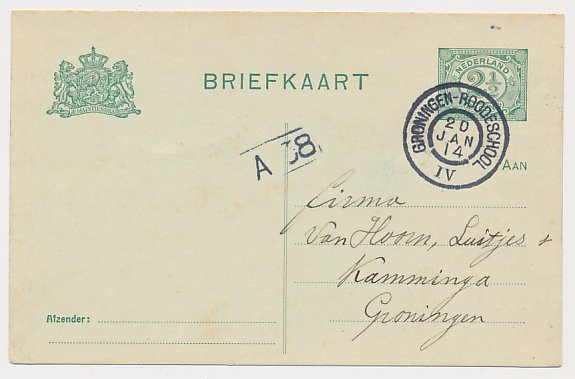 BRIEFKAART
NEDERLAND
2½
GRONINGEN-ROODESCHOOL
20
JAN
14
IV
AAN
A 38
Firma
Van Hoorn, Luitjes &
Kamminga
Groningen
Afzender: